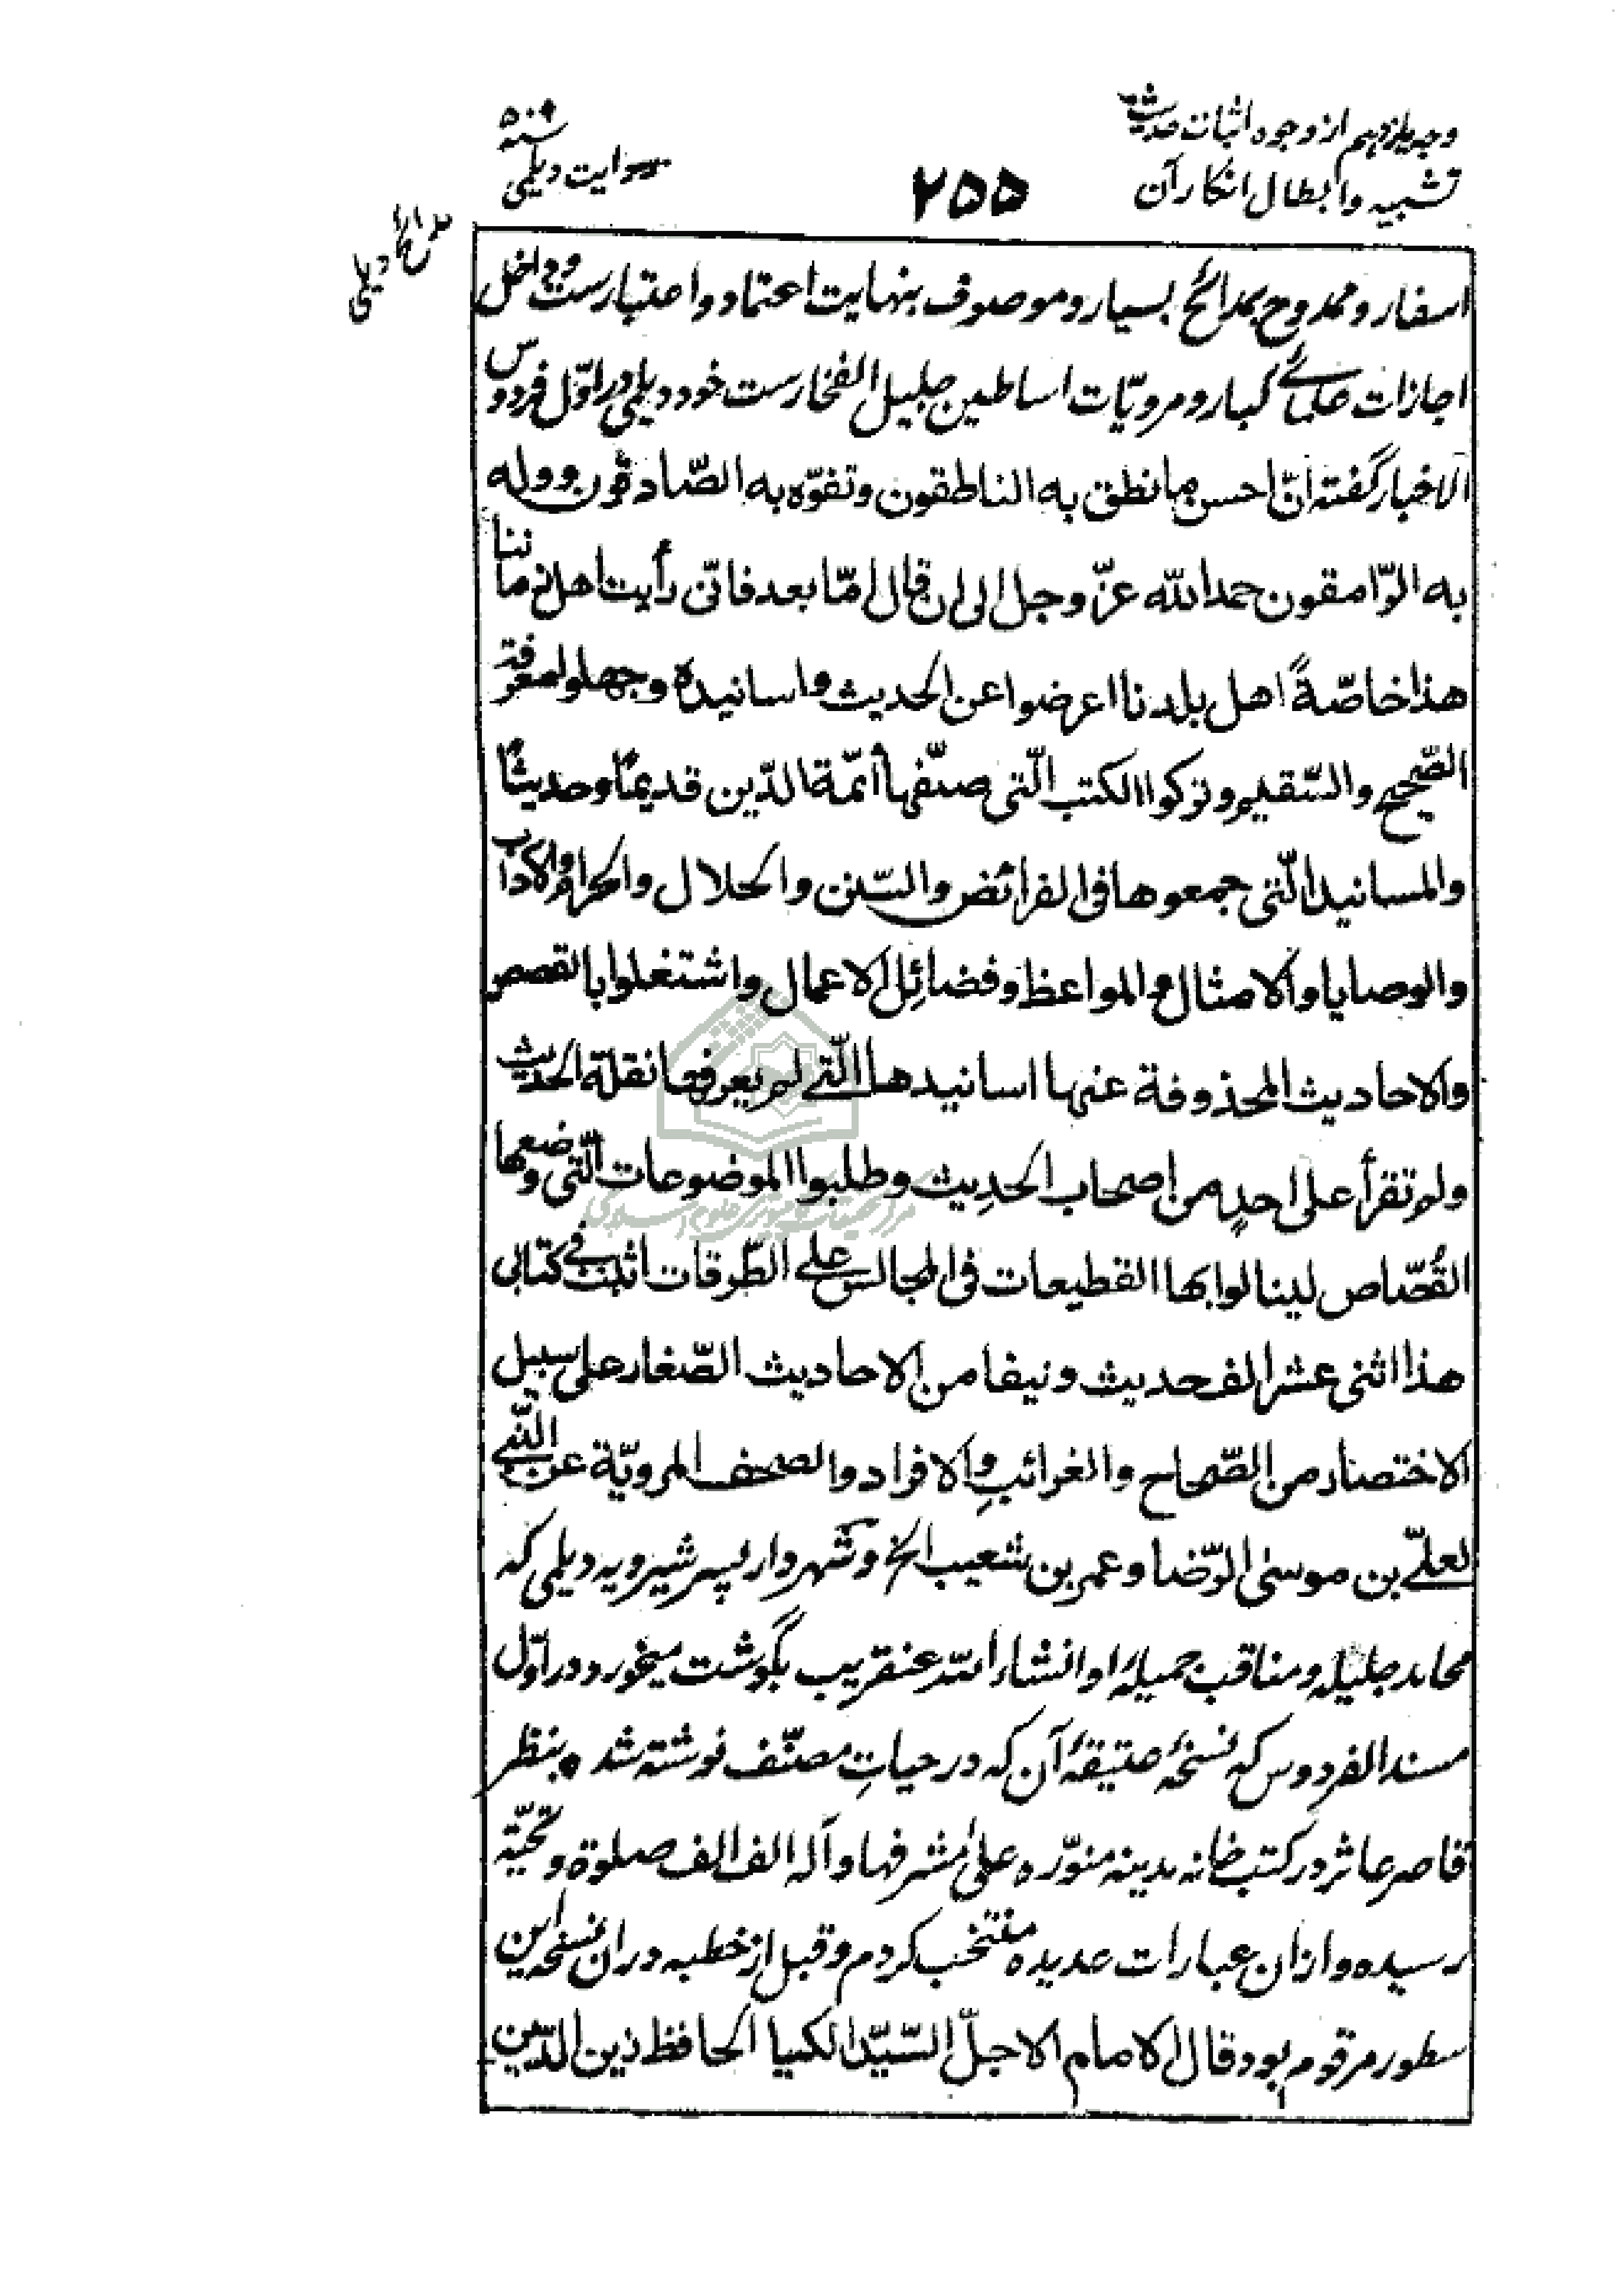 وجه یازدهم از وجوه اثبات حدیث
تشبیه و ابطال انکار آن
۲۵۵
سنه ۵۰۹
روایت دیلمی
مدائح دیلمی
اسفار و ممدوح بمدائح بسیار و موصوف بنهایت اعتماد و اعتبارست و داخل
اجازات علمائے کبار و مرویّات اساطین جلیل الفخارست خود دیلمی در اوّل فردوس
الاخبار گفته انّ احسن ما نطق به الناطقون و تفوّه به الصّادقون و وله
به الوّامقون حمد اللّه عزّ وجل الی ان قال امّا بعد فانّی رأیت اهل زماننا
هذا خاصّةً اهل بلدنا اعرضوا عن الحدیث و اسانیده و جهلوا معرفة
الصّحیح والسّقیم و ترکوا الکتب الّتی صنّفها أئمّة الدّین قدیمًا و حدیثًا
والمسانید الّتی جمعوها فی الفرائض والسّنن والحلال والحرام والآداب
والوصایا والامثال و المواعظ و فضائل الاعمال و اشتغلوا بالقصص
والاحادیث المحذوفة عنها اسانیدها الّتے لم یعرفها نقلة الحدیث
ولم تقرأ علی احدٍ من اصحاب الحدیث و طلبوا الموضوعات الّتی وضعها
القُصّاص لینالوا بها القطیعات فی المجالس علے الطّرقات اثبت فی کتابی
هذا اثنی عشر الف حدیث و نیفا من الاحادیث الصّغار علی سبیل
الاختصار من الصّحاح والغرائب والافراد والصحف المرویّة عن النّبے
لعلّے بن موسی الرّضا و عمر بن شعیب الخ و شهردار پسر شیرویه دیلمی که
محامد جلیله و مناقب جمیلۀ او انشاء اللّه عنقریب بگوشت میخورد در اوّل
مسند الفردوس که نسخۀ عتیقۀ آن که در حیاتِ مصنّف نوشته شد و بنظر
قاصر عاثر در کتب خانه مدینه منوّره علیٰ مشرفها و آله الف الف صلوة و تحیّة
رسیده و از ان عبارات عدیده منتخب کردم و قبل از خطبه در ان نسخه این
سطور مرقوم بود قال الامام الاجلّ السّیّد الکیا الحافظ زین الدّین